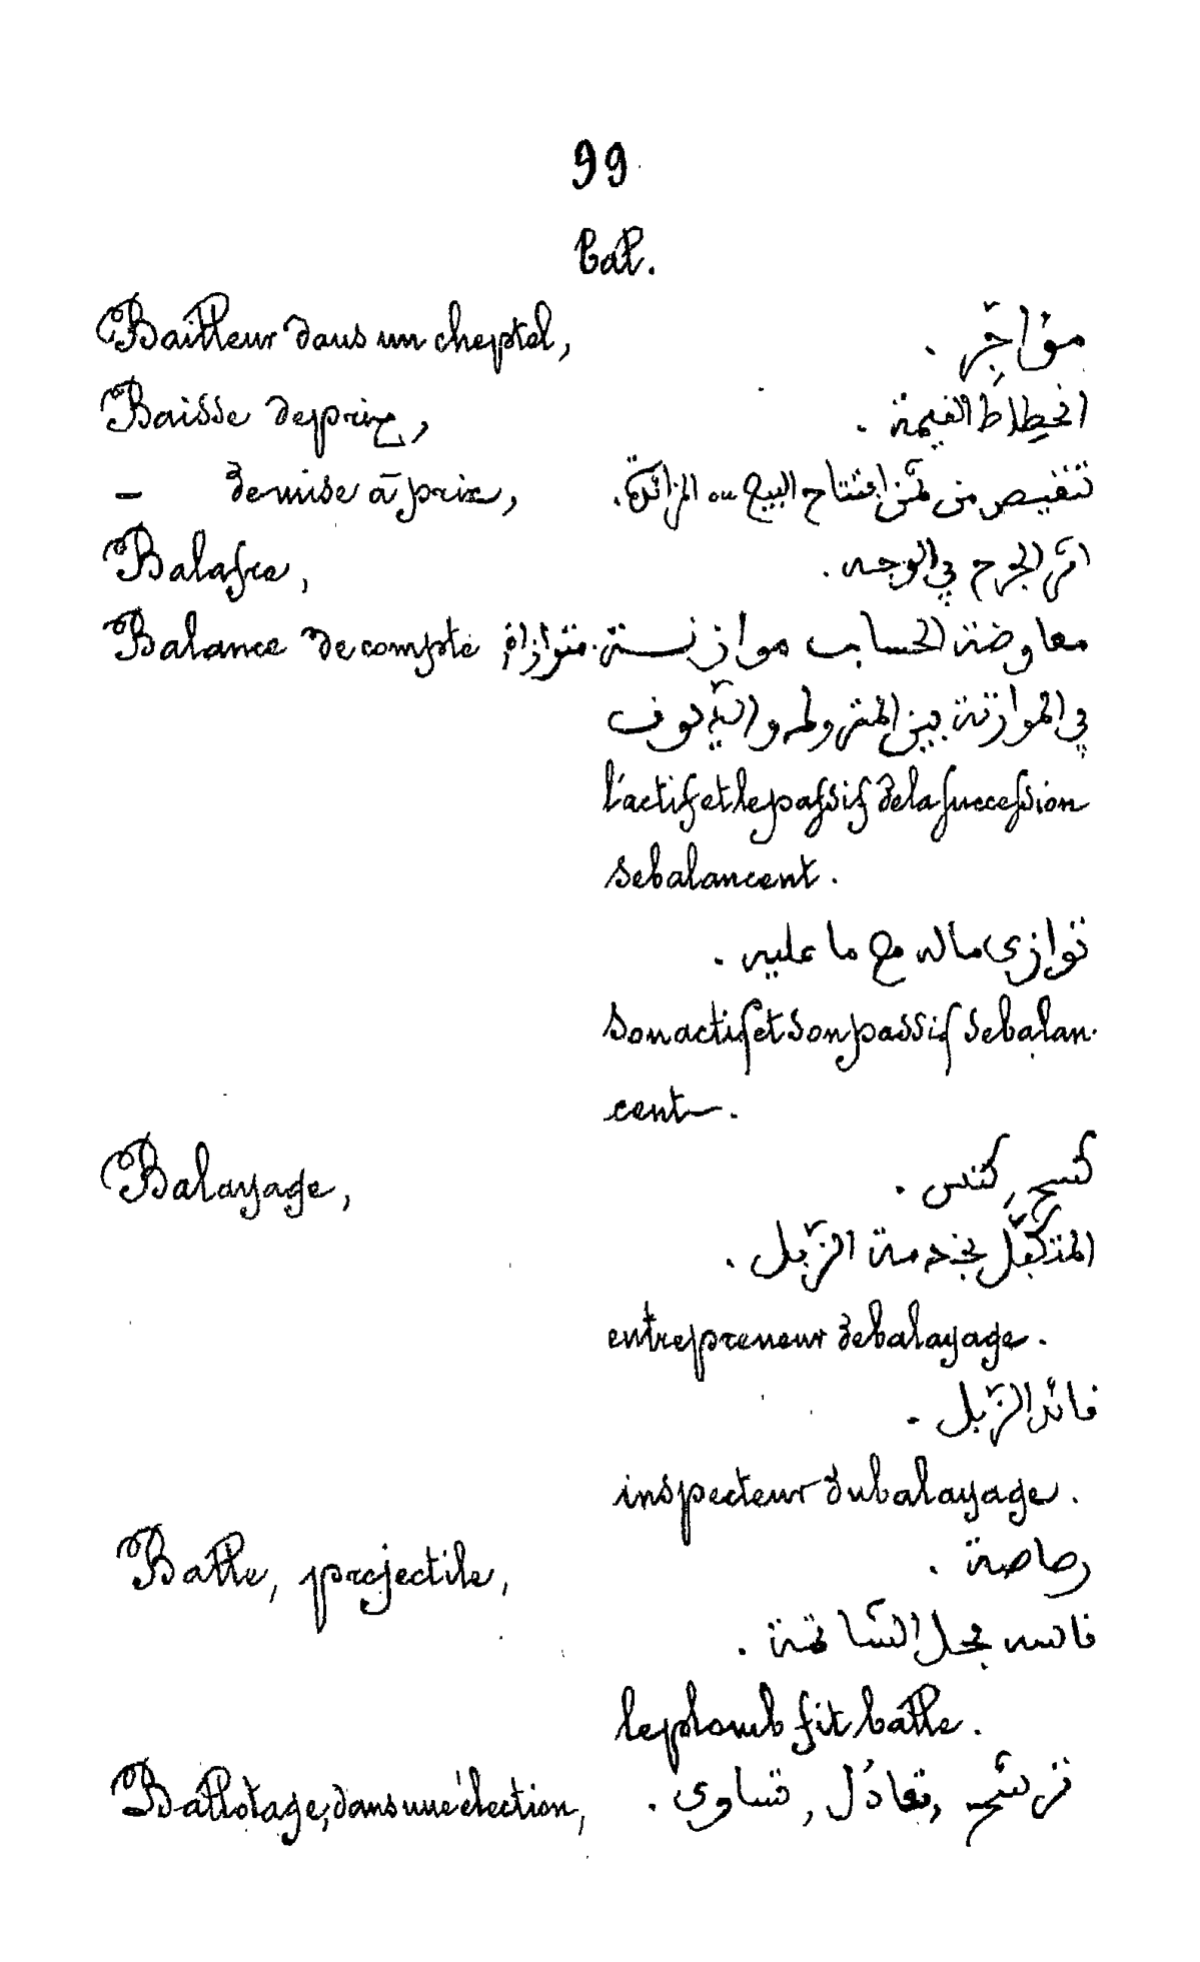 99
Bal.
Bailleur dans un cheptel, مؤاجّر .
Baisse de prix, انحِطاط القيمة .
— de mise à prix, تنقيص من ثمن افتتاح البيع ou المزائدة .
Balafre, اثر الجرح في الوجه .
Balance de compte معاوضة الحساب موازنـــة . متوازاة
في الموازنة بين المتروك والديون
l'actif et le passif de la succession
se balancent .
توازى ماله مع ما عليه .
Son actif et son passif se balan-
cent .
Balayage, كسح, كنس .
المتكبّل بخدمة الزّبل .
entrepreneur de balayage .
قائد الزّبل .
inspecteur du balayage .
Balle, projectile, رصاصة .
le plomb fit balle .
Ballotage, dans une élection, ترشّح , تعادُل , تساوى .